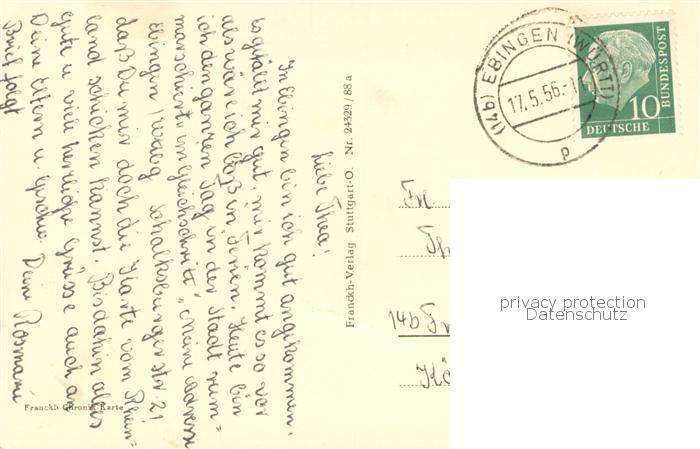 Liebe Thea!
In Ebingen bin ich gut angekommen,
es gefällt mir gut, mir kommt es so vor
als wäre ich bloß in Ferien. Heute bin
ich den ganzen Tag in der Stadt rum=
marschiert "im Gleichschritt". Meine Adresse
Ebingen / Württbg Schalksburgerstr. 21
daß Du mir doch die Karte vom Rhein=
land schicken kannst. Bis dahin alles
gute u. viele herzliche Grüsse auch an
Deine Eltern u. Geschw. Deine Rosmarie
Brief folgt
Franckh-Chronik-Karte
Franckh-Verlag Stuttgart-O. Nr. 24329/88 a
(14b) EBINGEN (WÜRTT)
17.5.56.-11
p
10
DEUTSCHE
BUNDESPOST
Frl.
Th
14b Fr
Kö
privacy protection
Datenschutz